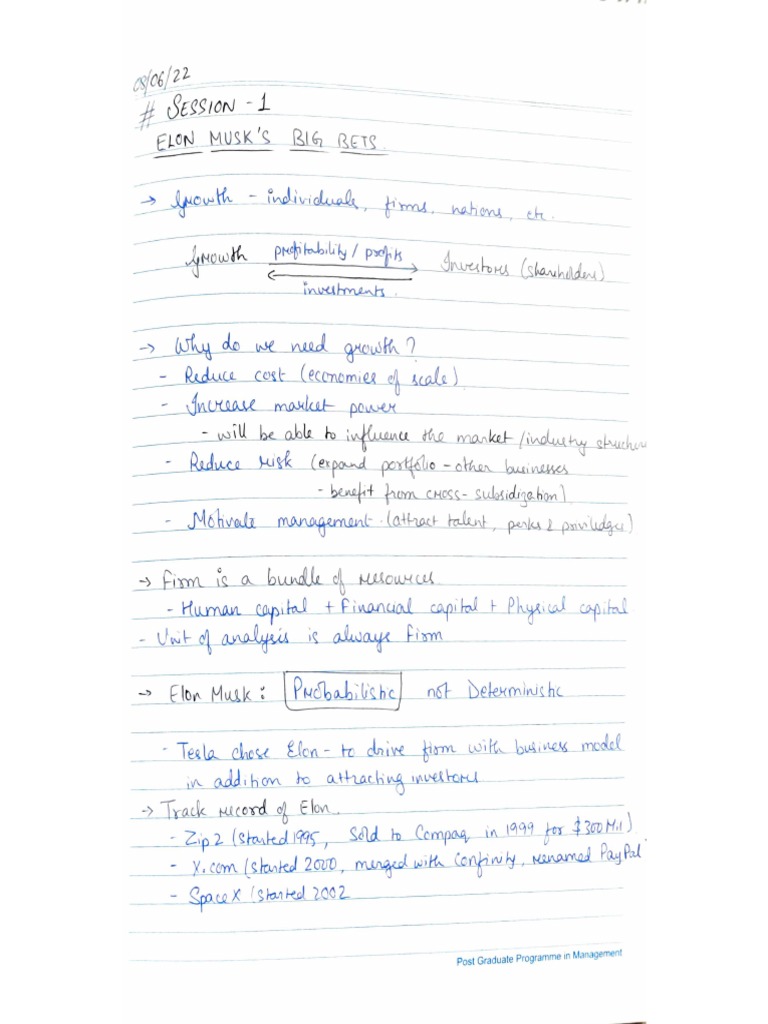 08/06/22
# SESSION - 1
ELON MUSK'S BIG BETS
→ Growth - individuals, firms, nations, etc.
Growth profitability / profits Investors (shareholders)
investments.
→ Why do we need growth?
- Reduce cost (economies of scale)
- Increase market power
- will be able to influence the market / industry structure
- Reduce risk (expand portfolio - other businesses
- benefit from cross-subsidization)
- Motivate management. (attract talent, perks & priviledges)
→ Firm is a bundle of resources
- Human capital + Financial capital + Physical capital
- Unit of analysis is always firm
→ Elon Musk: Probabilistic not Deterministic
- Tesla chose Elon - to drive firm with business model
in addition to attracting investors
→ Track record of Elon.
- Zip2 (started 1995, Sold to Compaq in 1999 for $300 Mil)
- X.com (started 2000, merged with Confinity, renamed PayPal
- SpaceX (started 2002
Post Graduate Programme in Management